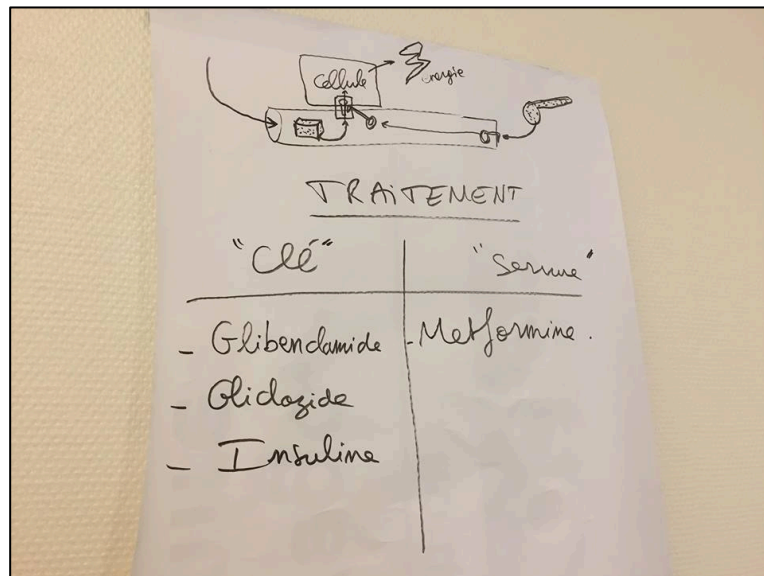 Cellule
énergie
TRAiTEMENT
"Clé" "Serrure"
- Glibenclamide - Metformine.
- Gliclazide
- Insuline